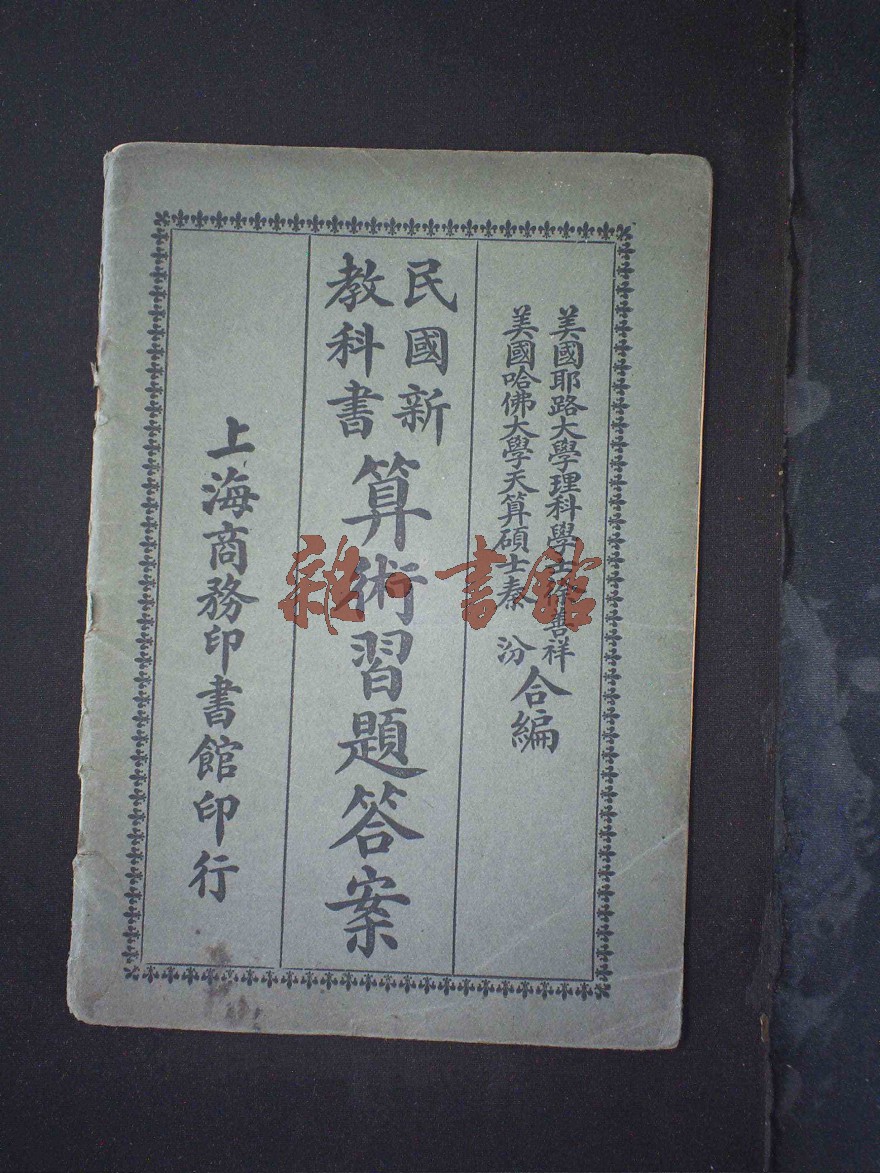 美國耶路大學理科學士徐善祥
美國哈佛大學天算碩士秦汾
合編
民國新
教科書
算術習題答案
上海商務印書館印行
雜·書館